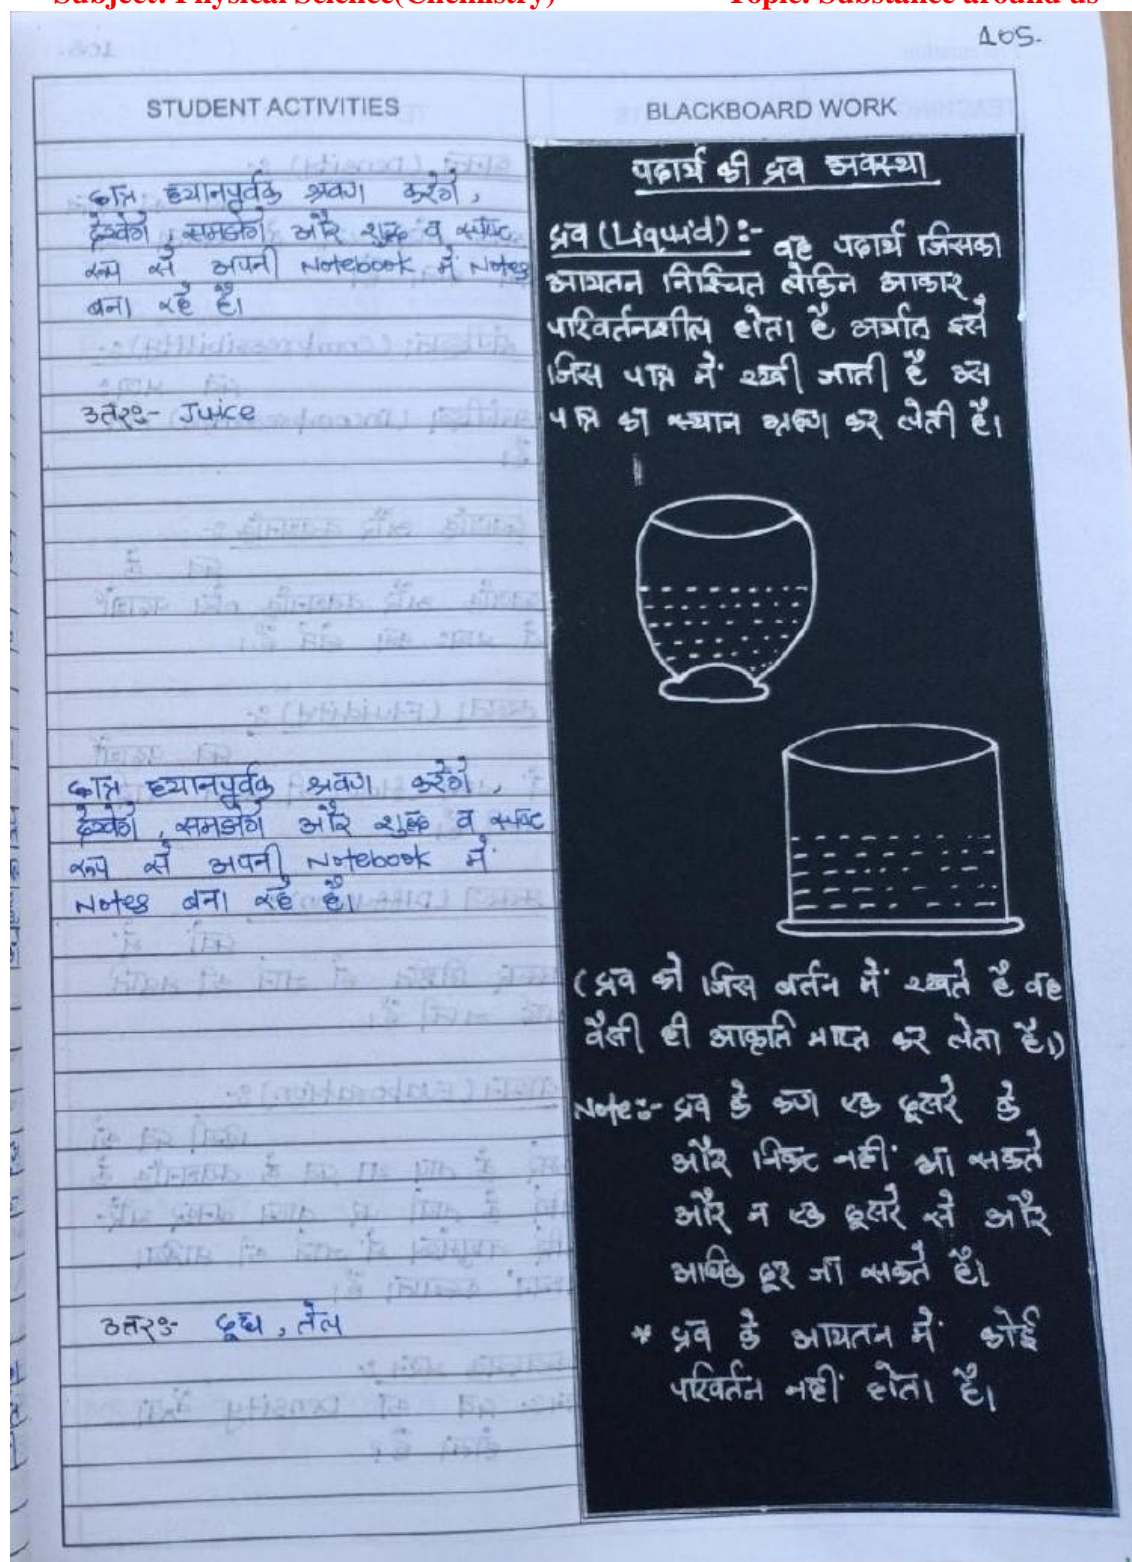 Subject: Physical Science(Chemistry) Topic: Substance around us
105.
STUDENT ACTIVITIES
छात्र ध्यानपूर्वक श्रवण करेंगे,
देखेंगे, समझेंगे और शुद्ध व स्पष्ट
रूप से अपनी Notebook में Notes
बना रहे है।
उत्तरः- Juice
छात्र ध्यानपूर्वक श्रवण करेंगे,
देखेंगे, समझेंगे और शुद्ध व स्पष्ट
रूप से अपनी Notebook में
Notes बना रहे है।
उत्तरः- दूध, तेल
BLACKBOARD WORK
पदार्थ की द्रव अवस्था
द्रव (Liquid) :- वह पदार्थ जिसका
आयतन निश्चित लेकिन आकार
परिवर्तनशील होता है अर्थात इसे
जिस पात्र में रखी जाती है उस
पात्र का स्थान ग्रहण कर लेती है।
(द्रव को जिस बर्तन में रखते है वह
वैसी ही आकृति प्राप्त कर लेता है।)
Note:- द्रव के कण एक दूसरे के
और निकट नहीं आ सकते
और न एक दूसरे से और
अधिक दूर जा सकते है।
* द्रव के आयतन में कोई
परिवर्तन नहीं होता है।